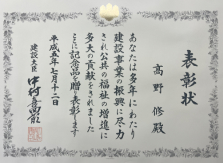 表彰状
高野 修殿
あなたは多年にわたり
建設事業の振興に尽力
され公共の福祉の増進に
多大の貢献をされました
ここに記念品を贈り表彰します
平成五年七月十二日
建設大臣 中村喜四郎